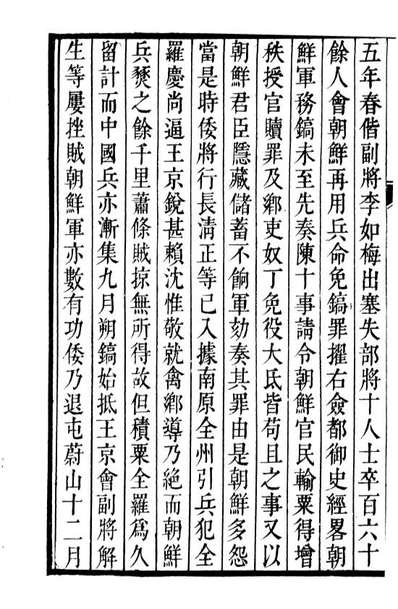 五年春偕副將李如梅出塞失部將十人士卒百六十
餘人會朝鮮再用兵命免鎬罪擢右僉都御史經畧朝
鮮軍務鎬未至先奏陳十事請令朝鮮官民輸粟得增
秩授官贖罪及鄉吏奴丁免役大氐皆苟且之事又以
朝鮮君臣隱藏儲蓄不餉軍劾奏其罪由是朝鮮多怨
當是時倭將行長淸正等已入據南原全州引兵犯全
羅慶尚逼王京銳甚賴沈惟敬就禽鄉導乃絶而朝鮮
兵燹之餘千里蕭條賊掠無所得故但積粟全羅爲久
留計而中國兵亦漸集九月朔鎬始抵王京會副將解
生等屢挫賊朝鮮軍亦數有功倭乃退屯蔚山十二月